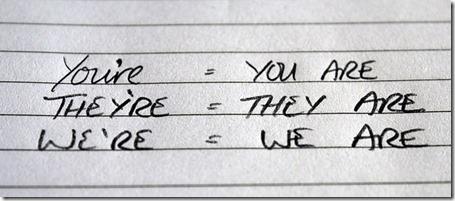 You're = YOU ARE
THEY'RE = THEY ARE
WE'RE = WE ARE